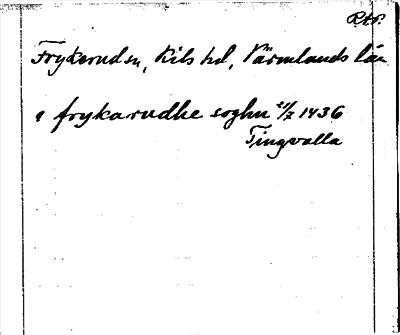 RAP.
Frykerud sn, Kils hd, Värmlands län
i frykarudhe soghn 21/2 1436
Tingvalla